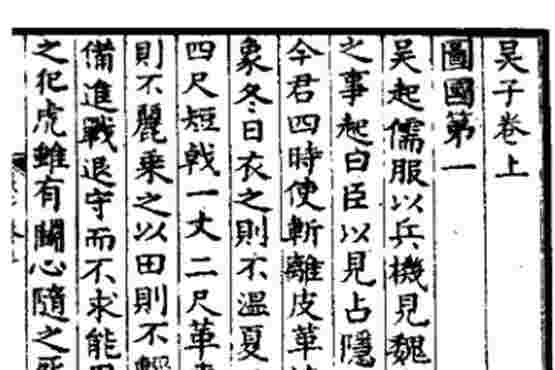 吳子卷上
圖國第一
吳起儒服以兵機見魏
之事起曰臣以見占隱
今君四時使斬離皮革
象冬日衣之則不溫夏
四尺短戟一丈二尺革
則不麗乘之以田則不輕
備進戰退守而不求能
之犯虎雖有鬭心隨之死